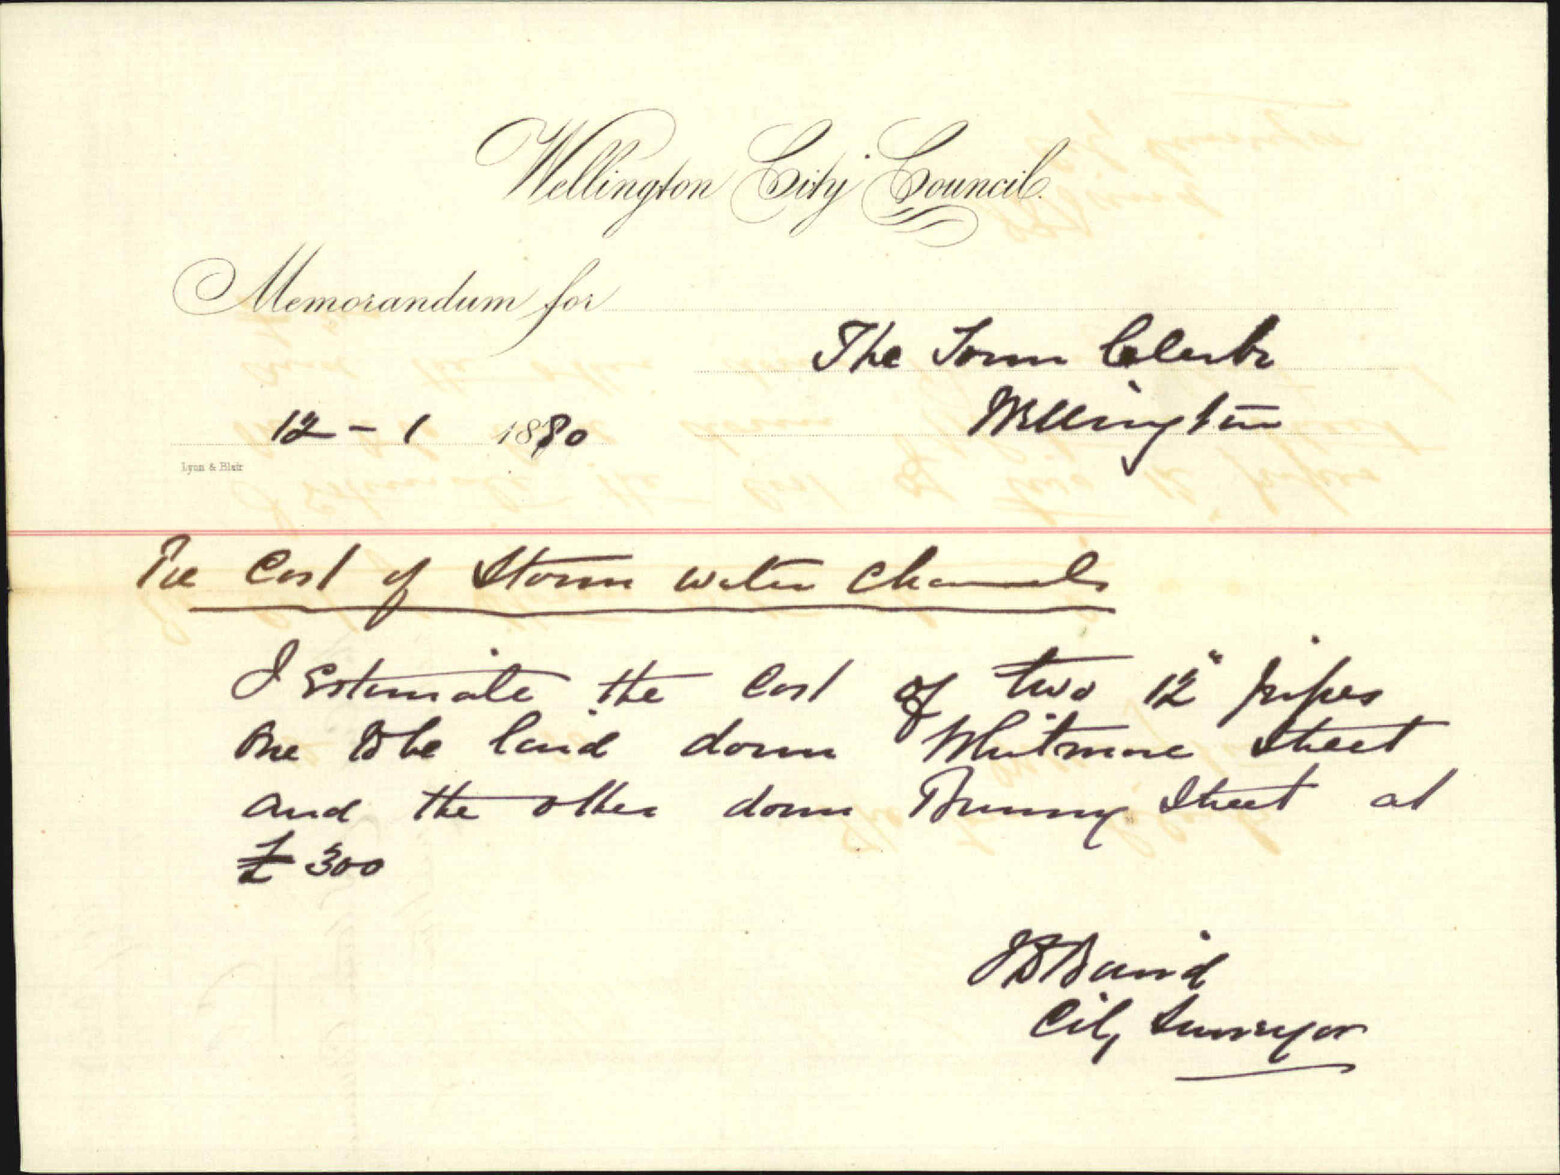 Wellington City Council.
Memorandum for
The Town Clerk
Wellington
12 - 1 1880
Lyon & Blair
Re Cost of Storm water Channels
I Estimate the Cost of two 12" pipes
One to be laid down Whitmore Street
and the other down Bunny Street at
£300
J D Baird
City Surveyor